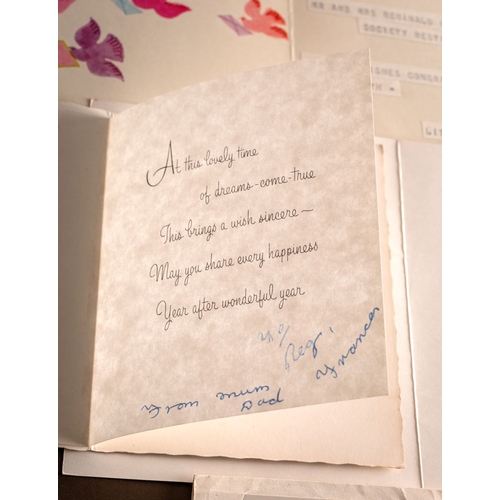 MR AND MRS REGINALD
SOCIETY REST
SHES CONGRA
TH -
LIT
At this lovely time
of dreams-come-true
This brings a wish sincere—
May you share every happiness
Year after wonderful year
Reg,
Frances
From mum
Dad